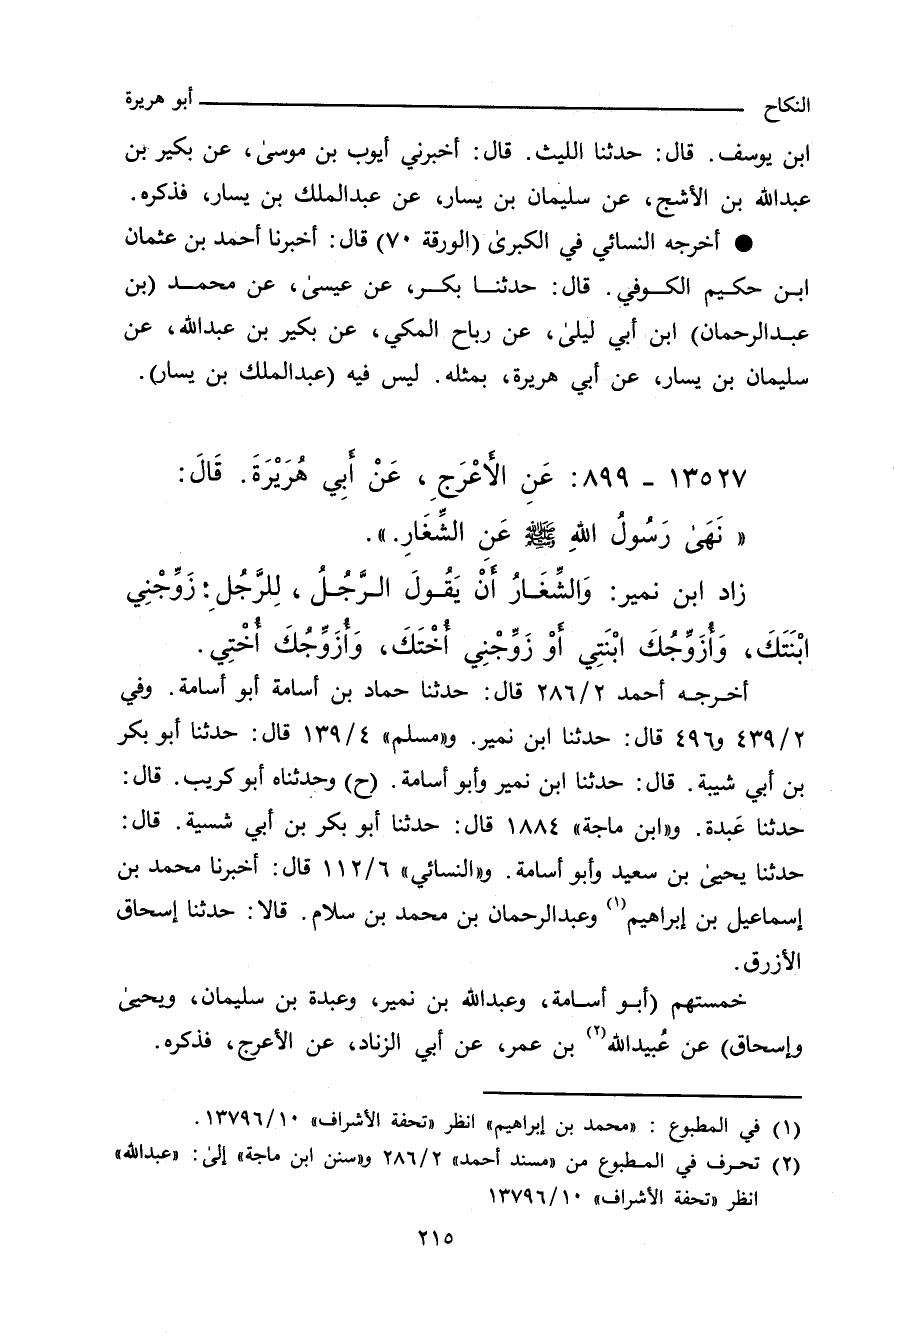 النكاح ــــــــــــــــــــ أبو هريرة
ابن يوسف. قال: حدثنا الليث. قال: أخبرني أيوب بن موسىٰ، عن بكير بن
عبدالله بن الأشج، عن سليمان بن يسار، عن عبدالملك بن يسار، فذكره.
● أخرجه النسائي في الكبرىٰ (الورقة ٧٠) قال: أخبرنا أحمد بن عثمان
ابـن حكـيـم الكـوفي. قال: حدثنـا بكـر، عن عيسىٰ، عن محمـد (بن
عبـدالرحمان) ابن أبي ليلىٰ، عن رباح المكي، عن بكير بن عبدالله، عن
سليمان بن يسار، عن أبي هريرة، بمثله. ليس فيه (عبدالملك بن يسار).
١٣٥٢٧ - ٨٩٩: عَنِ الأَعْرَجِ، عَنْ أَبِي هُرَيْرَةَ. قَالَ:
« نَهَىٰ رَسُولُ اللهِ ﷺ عَنِ الشِّغَارِ.».
زاد ابن نمير: وَالشِّغَـارُ أَنْ يَقُـولَ الـرَّجُـلُ، لِلرَّجُلِ: زَوِّجْنِي
ابْنَتَكَ، وَأُزَوِّجُكَ ابْنَتِي أَوْ زَوِّجْنِي أُخْتَكَ، وَأُزَوِّجُكَ أُخْتِي.
أخـرجـه أحمد ٢٨٦/٢ قال: حدثنا حماد بن أسامة أبو أسامة. وفي
٤٣٩/٢ و٤٩٦ قال: حدثنا ابن نمير. و«مسلم» ١٣٩/٤ قال: حدثنا أبو بكر
بن أبي شيبة. قال: حدثنا ابن نمير وأبو أسامة. (ح) وحدثناه أبو كريب. قال:
حدثنا عَبدة. و«ابن ماجة» ١٨٨٤ قال: حدثنا أبو بكر بن أبي شسية. قال:
حدثنا يحيىٰ بن سعيد وأبو أسامة. و«النسائي» ١١٢/٦ قال: أخبرنا محمد بن
إسماعيل بن إبراهيم(١) وعبدالرحمان بن محمد بن سلام. قالا: حدثنا إسحاق
الأزرق.
خمستهم (أبـو أسـامة، وعبدالله بن نمير، وعبدة بن سليمان، ويحيىٰ
وإسحاق) عن عُبيدالله(٢) بن عمر، عن أبي الزناد، عن الأعرج، فذكره.
(١) في المطبوع : «محمد بن إبراهيم» انظر «تحفة الأشراف» ١٣٧٩٦/١٠.
(٢) تحرف في المطبوع من «مسند أحمد» ٢٨٦/٢ و«سنن ابن ماجة» إلىٰ: «عبدالله»
انظر «تحفة الأشراف» ١٣٧٩٦/١٠
٢١٥